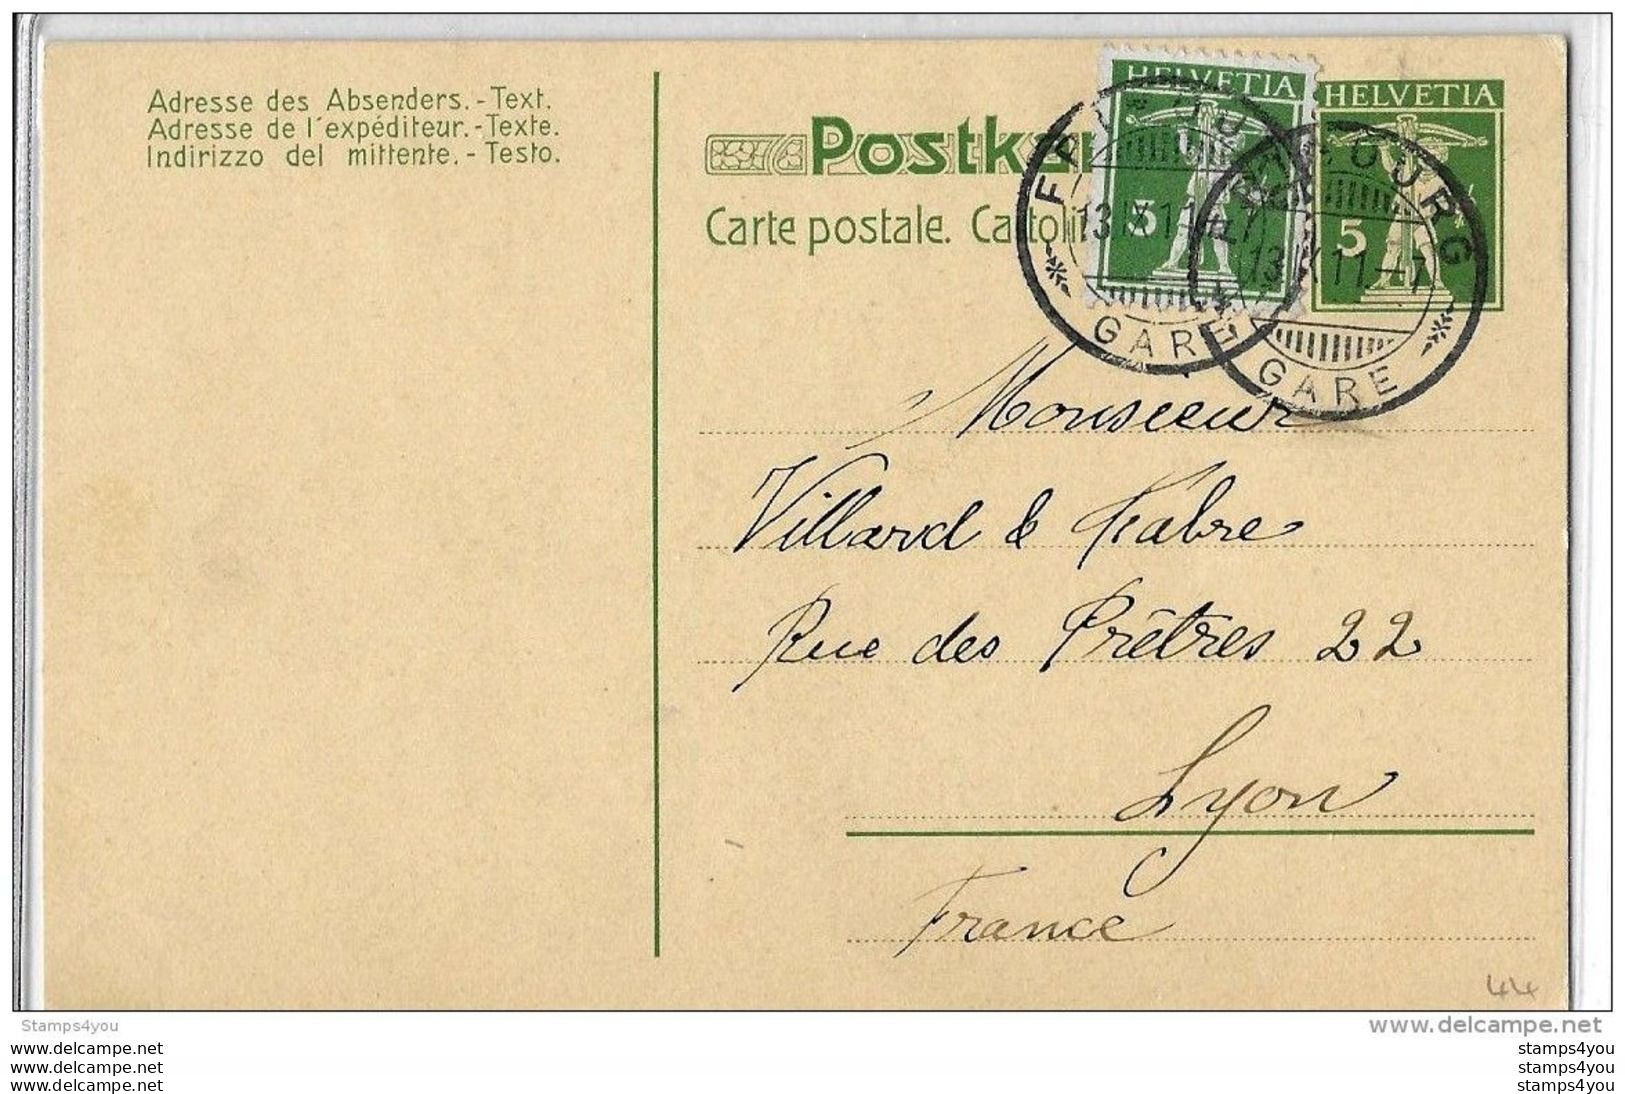 Adresse des Absenders. - Text.
Adresse de l'expéditeur. - Texte.
Indirizzo del mittente. - Testo.
Postkar
Carte postale. Cartoli
HELVETIA
5
HELVETIA
5
FRIBOURG
13 IX 11 - 7
GARE
FRIBOURG
13 IX 11 - 7
GARE
Monsieur
Villard & Fabre
Rue des Prêtres 22
Lyon
France
44
Stamps4you
www.delcampe.net
www.delcampe.net
www.delcampe.net
www.delcampe.net
stamps4you
stamps4you
stamps4you